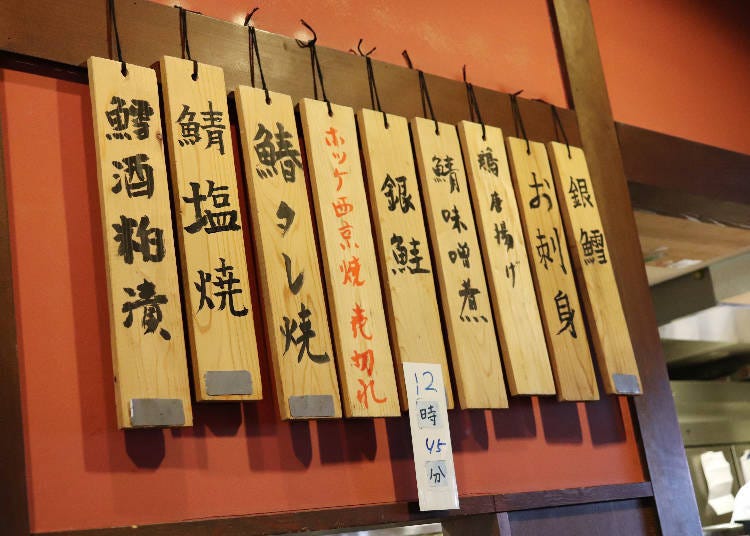 鱈酒粕漬
鯖塩焼
鰆タレ焼
ホッケ西京焼 売切れ
銀鮭
鯖味噌煮
鶏唐揚げ
お刺身
銀鱈
12時45分